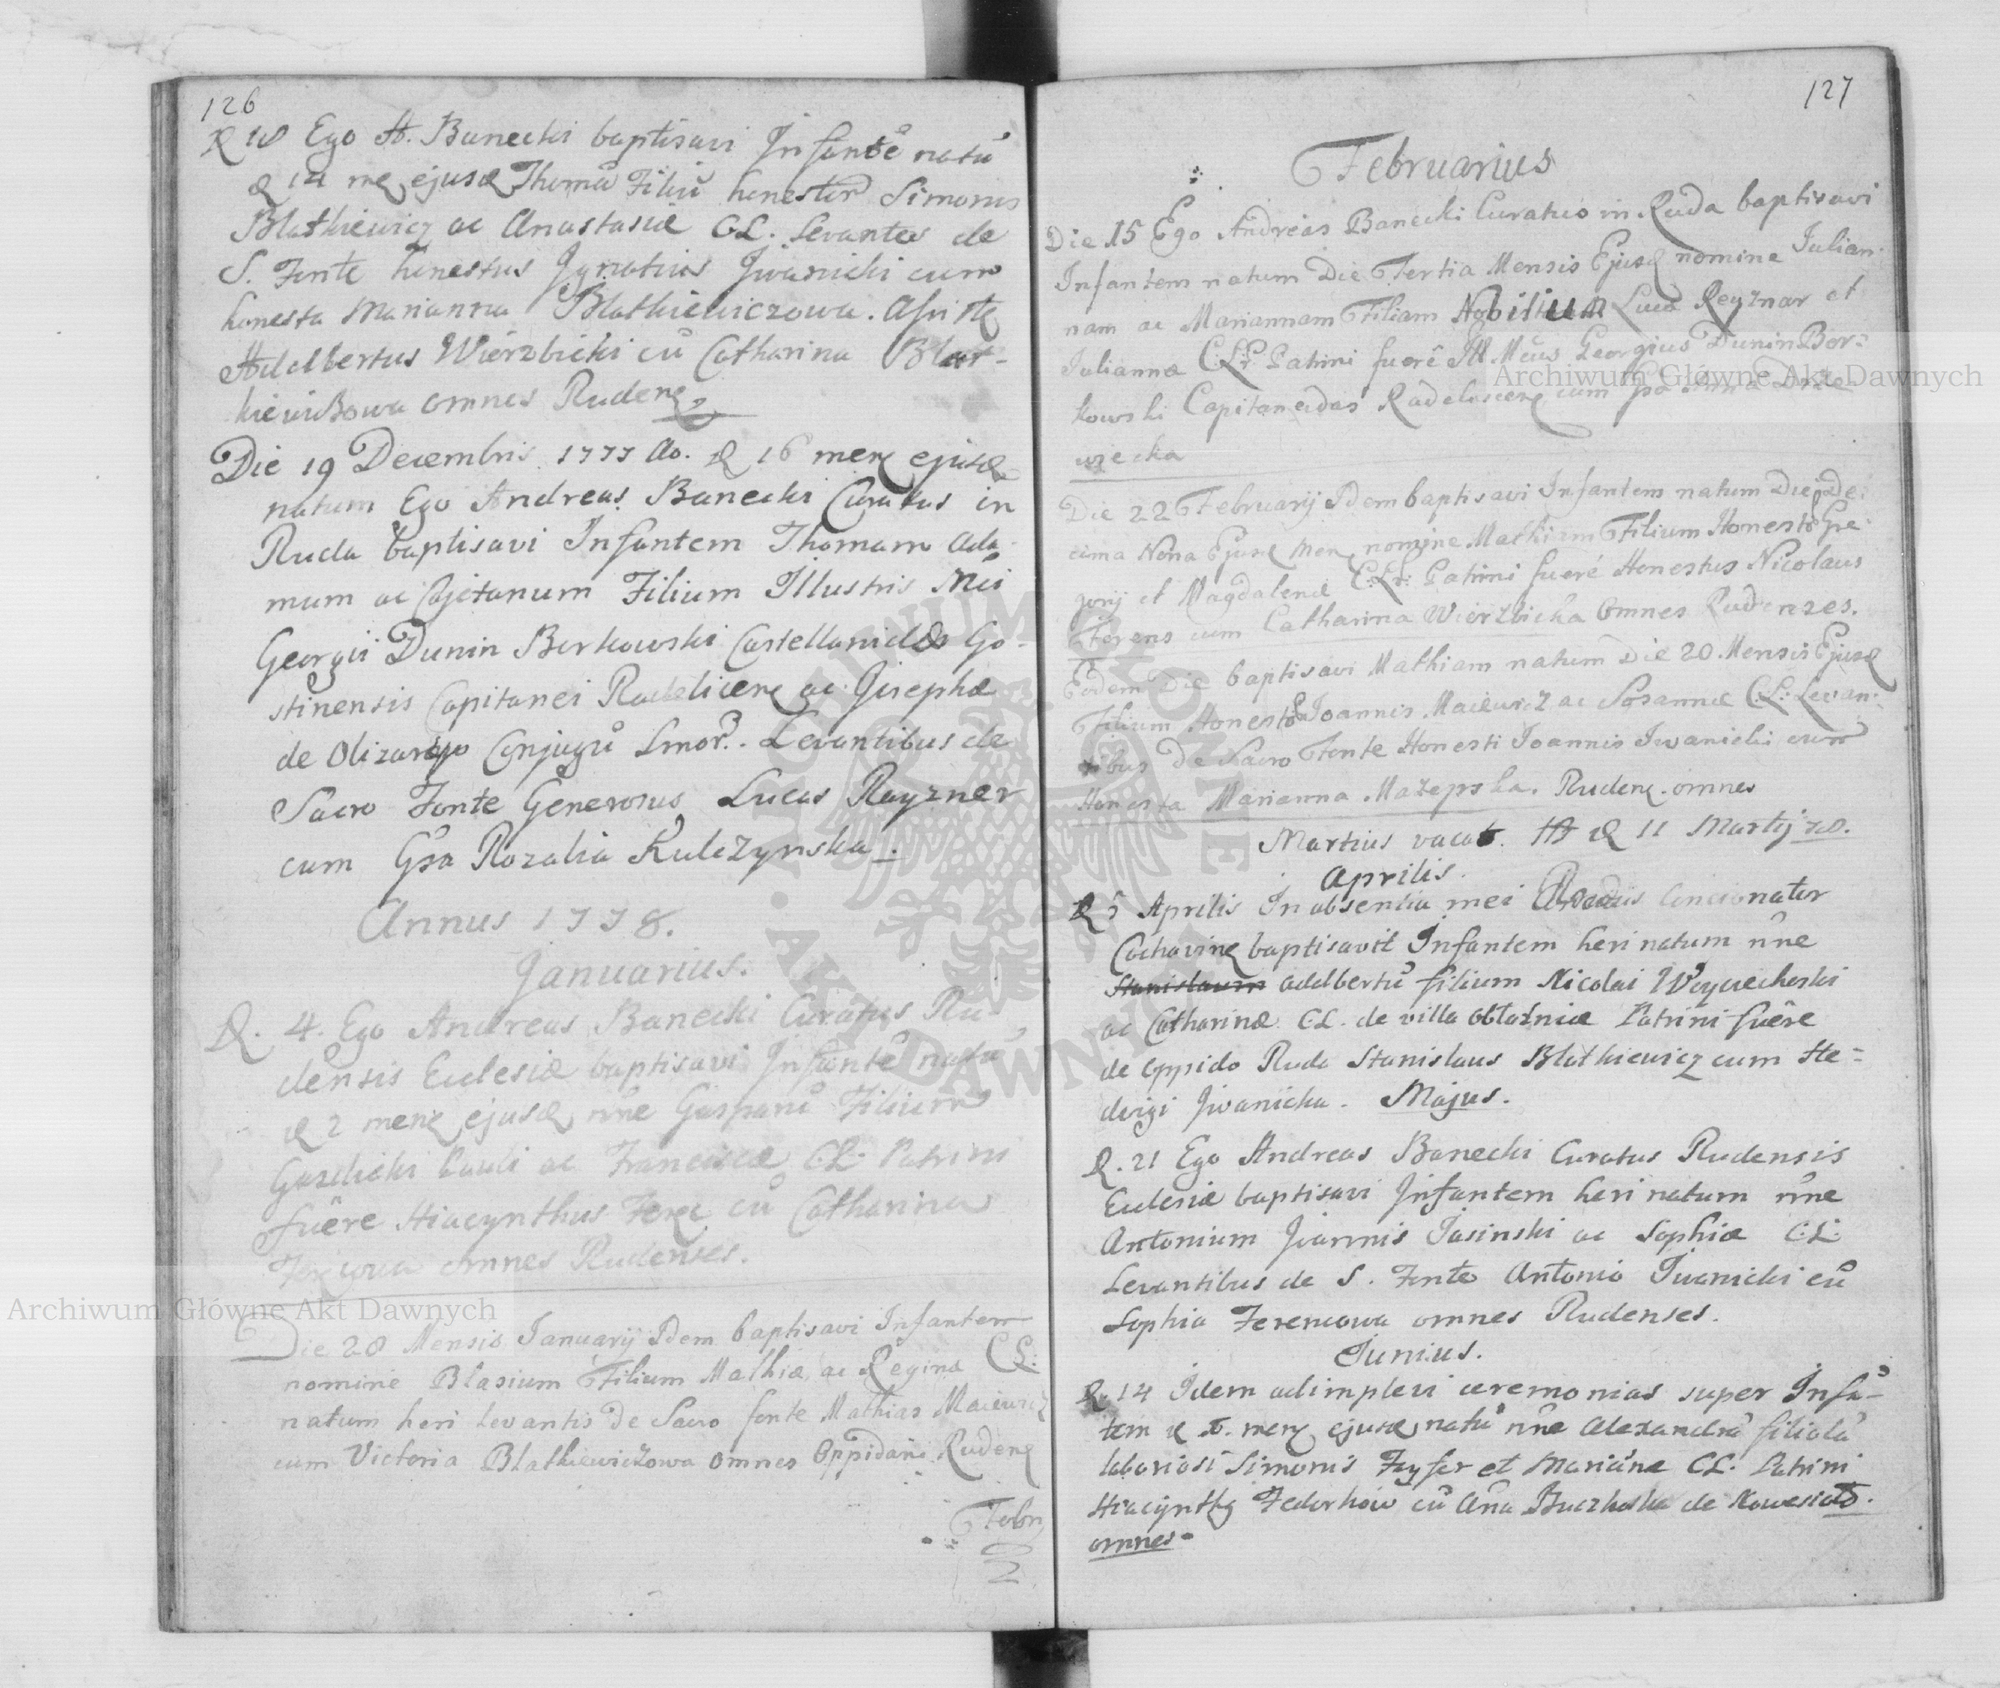 126
D 18 Ego A. Banecki baptisavi Infantē natū
D 14 mē ejusd Thomā Filiū honestor Simonis
Blatkiewicz ac Anastasiæ CL. Levantes de
S. Fonte honestus Ignatius Iwanicki cum
honesta Marianna Blatkiewiczowa. Assistē
Adalbertus Wierzbicki cū Catharina Blat-
kiewiczowa omnes Rudens
Die 19 Decembris 1777 Ao. D 16 mens ejusd
natum Ego Andreas Banecki Curatus in
Ruda baptisavi Infantem Thomam Ada-
mum ac Cajetanum Filium Illustris Mci
Georgii Dunin Borkowski Castellanidæ Go-
stinensis Capitanei Radelicens ac Josephæ
de Olizarow Conjugū Lmor. Levantibus de
Sacro Fonte Generosus Lucas Rayzner
cum Gsa Rozalia Kulczynska.
Annus 1778.
Januarius.
D. 4. Ego Andreas Banecki Curatus Ru-
densis Eclesiæ baptisavi Infantē natū
D 2 mens ejusd nñe Gasparū Filium
Gurlicki Pauli ac Franciscæ CL. Patrini
fuēre Hiacynthus Ferens cū Catharina
omnes Rudenses.
Die 28 Mensis Januarij Idem baptisavi Infantem
nomine Blasium Filium Mathiæ ac Reginæ CL:
natum heri levantis de Sacro fonte Mathias Maiewicz
cum Victoria Blatkiewiczowa omnes Oppidani Rudens
Febru
127
Februarius
Die 15 Ego Andreas Banecki Curatus in Ruda baptisavi
Infantem natum Die Tertia Mensis Ejusd nomine Julian-
nam ac Mariannam Filiam Nobilium Luca Reyznar et
Juliannæ C:L: Patrini fuerē Ill Mcus Georgius Dunin Bor-
kowski Capitaneidas Radeloscens cum Gsa Anna Andre-
wiecka
Die 22 Februarij Idem baptisavi Infantem natum Die De-
cima Nona Ejusd Mens nomine Mathiam Filium Honesto Gre-
gorij et Magdalenæ C:L: Patrini fueré Honestus Nicolaus
Ferens cum Catharina Wierzbicka Omnes Rudenzes.
Eodem Die baptisavi Mathiam natum Die 20 Mensis Ejusd
Filium Honesto Joannis Maiewicz ac Sosannæ C:L: Levan-
tibus De Sacro Fonte Honesti Joannis Iwanicki cum
Honesta Marianna Mazepska. Rudens omnes
Martius vacat. D 11 Martij
Aprilis.
D 5 Aprilis In absentia mei Concionator
baptisavit Infantem heri natum nñe
Stanislaum adalbertū filium Nicolai Woyciechoski
ac Catharinæ CL. de villa Obłaźnica Patrini fuēre
de oppido Ruda Stanislaus Blatkiewicz cum He-
dvigi Iwanicka. Majus.
D. 21 Ego Andreas Banecki Curatus Rudensis
Eclesiæ baptisavi Infantem heri natum nñe
Antonium Joannis Jasinski ac Sophiæ C:L:
Levantibus de S. Fonte Antonio Iwanicki cū
Sophia Ferencowa omnes Rudenses.
Junius.
D 14 Idem adimplevi ceremonias super Infā-
tem D 5. mens ejusd natū nñe Alexandrā filiolā
laboriosi Simonis Fayfer et Mariānæ CL. Patrini
Hiacynthg Fedorkow cū Aña Buczkoska de
omnes.
Archiwum Główne Akt Dawnych
Archiwum Główne Akt Dawnych
ARCHIWUM GŁÓWNE AKT DAWNYCH